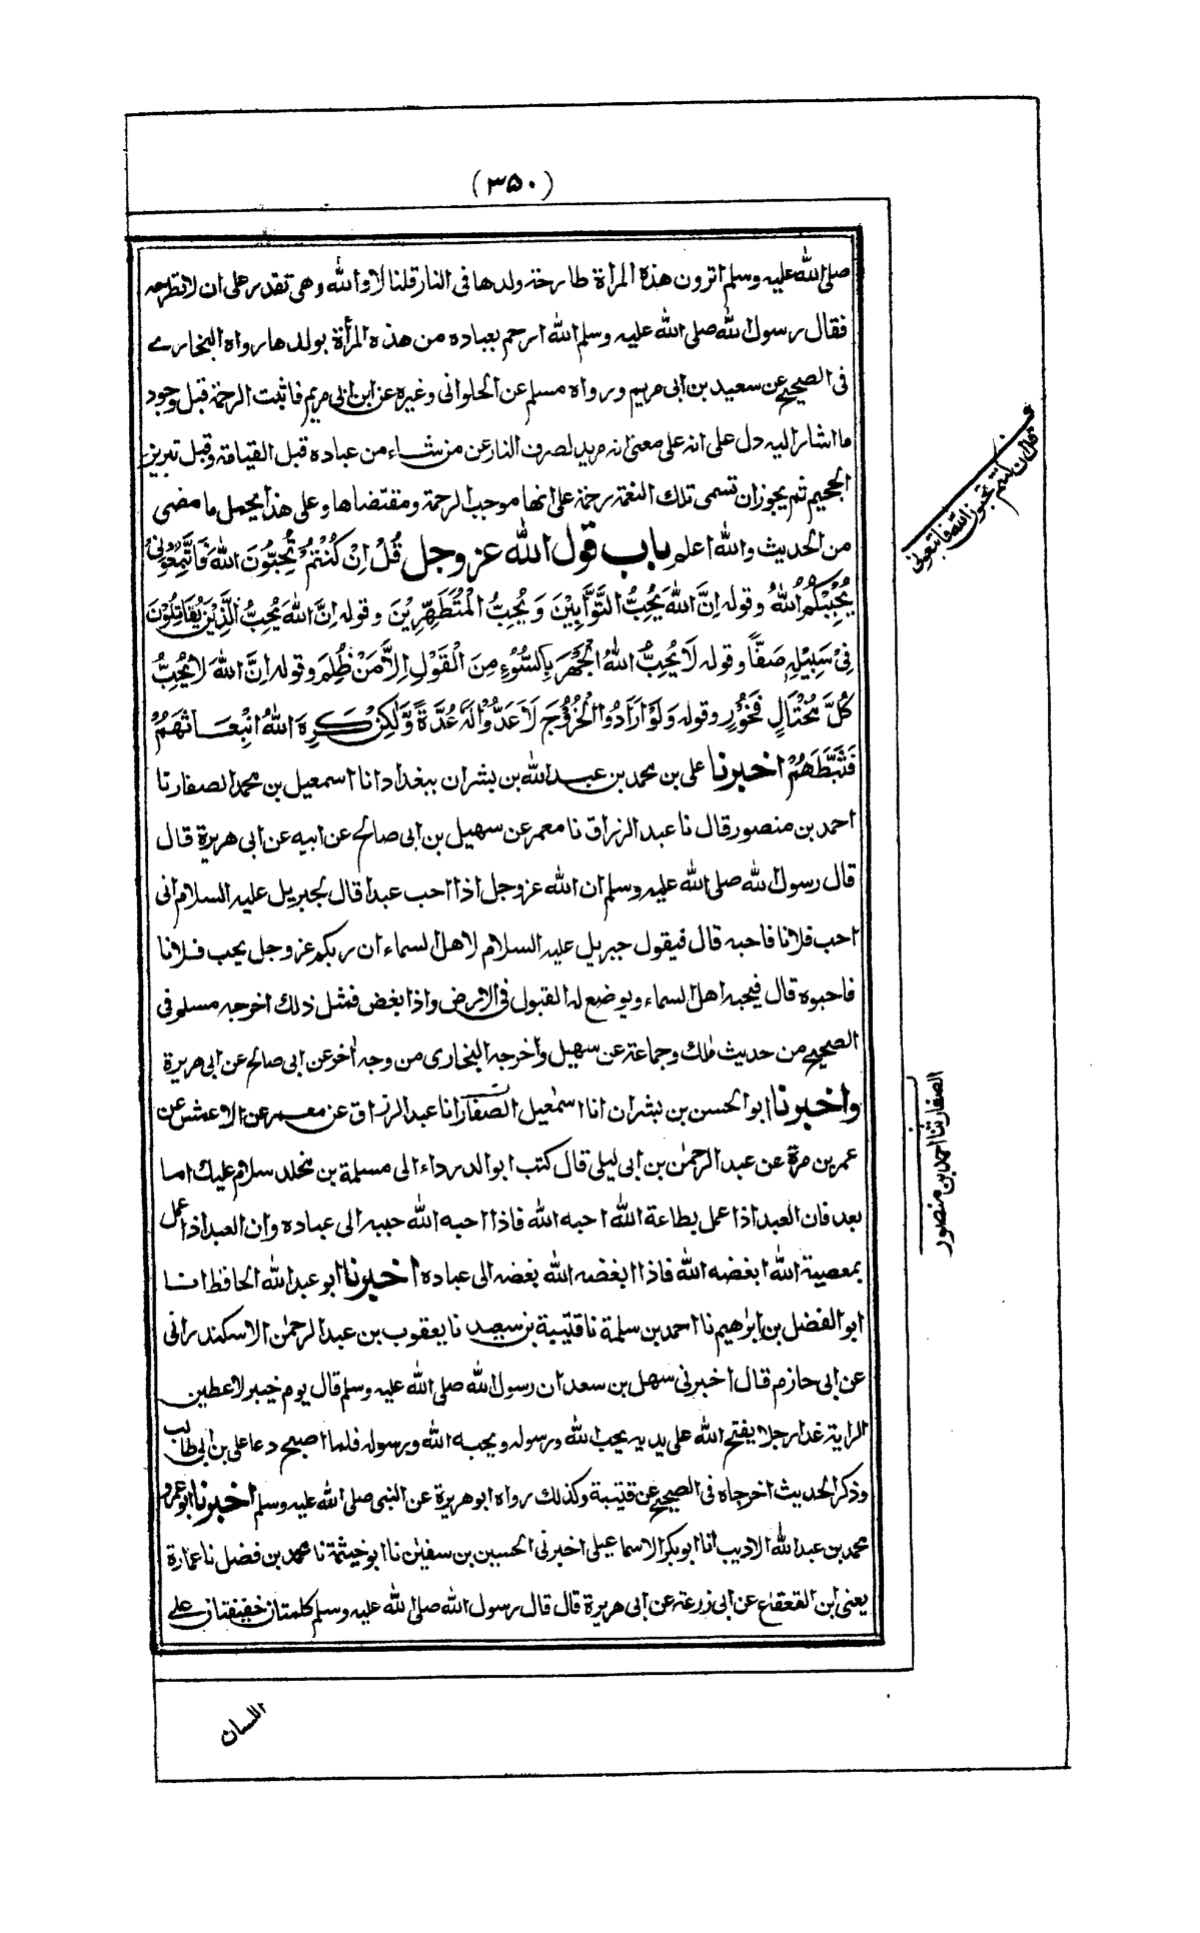 (۳۵۰)
صلى الله عليه وسلم اترون هذه المرأة طارحة ولدها فى النار قلنا لا والله وهى تقدر على ان لا تطرحه
فقال رسول الله صلى الله عليه وسلم الله ارحم بعباده من هذه المرأة بولدها رواه البخارے
فى الصحيح عن سعيد بن ابى مريم ورواه مسلم عن الحلوانى وغيره عن ابن ابى مريم فاثبت الرحمة قبل وجود
ما اشار اليه دل على انه على معنى انه مريد لصرف النار عن من شاء من عباده قبل القيامة وقبل تبريز
الجحيم ثم يجوز ان تسمى تلك النعمة رحمة على انها موجب الرحمة ومقتضاها وعلى هذا يحمل ما مضى
من الحديث والله اعلم باب قول الله عز وجل قُلْ اِنْ كُنْتُمْ تُحِبُّوْنَ اللهَ فَاتَّبِعُوْنِىْ
يُحْبِبْكُمُ اللهُ وقوله اِنَّ اللهَ يُحِبُّ التَّوَّابِيْنَ وَيُحِبُّ الْمُتَطَهِّرِيْنَ وقوله اِنَّ اللهَ يُحِبُّ الَّذِيْنَ يُقَاتِلُوْنَ
فِىْ سَبِيْلِهٖ صَفًّا وقوله لَا يُحِبُّ اللهُ الْجَهْرَ بِالسُّوْءِ مِنَ الْقَوْلِ اِلَّا مَنْ ظُلِمَ وقوله اِنَّ اللهَ لَا يُحِبُّ
كُلَّ مُخْتَالٍ فَخُوْرٍ وقوله وَلَوْ اَرَادُوا الْخُرُوْجَ لَاَعَدُّوْا لَهٗ عُدَّةً وَّلٰكِنْ كَرِهَ اللهُ انْبِعَاثَهُمْ
فَثَبَّطَهُمْ اخبرنا على بن محمد بن عبد الله بن بشران ببغداد انا اسمعيل بن محمد الصفار نا
احمد بن منصور قال نا عبد الرزاق نا معمر عن سهيل بن ابى صالح عن ابيه عن ابى هريرة قال
قال رسول الله صلى الله عليه وسلم ان الله عز وجل اذا احب عبدا قال لجبريل عليه السلام انى
احب فلانا فاحبه قال فيقول جبريل عليه السلام لاهل السماء ان ربكم عز وجل يحب فلانا
فاحبوه قال فيحبه اهل السماء ويوضع له القبول فى الارض واذا ابغض فمثل ذلك اخرجه مسلم فى
الصحيح من حديث مٰلك وجماعة عن سهيل واخرجه البخارى من وجه اٰخر عن ابى صالح عن ابى هريرة
واخبرنا ابو الحسن بن بشران انا اسمٰعيل الصفار انا عبد الرزاق عن معمر عن الاعمش عن
عمر بن مرة عن عبد الرحمٰن بن ابى ليلى قال كتب ابو الدرداء الى مسلمة بن مخلد سلام عليك اما
بعد فان العبد اذا عمل بطاعة الله احبه الله فاذا احبه الله حببه الى عباده وان العبد اذا عمل
بمعصية الله ابغضه الله فاذا ابغضه الله بغضه الى عباده اخبرنا ابو عبد الله الحافظ انا
ابو الفضل بن ابرٰهيم نا احمد بن سلمة نا قتيبة بن سعيد نا يعقوب بن عبد الرحمٰن الاسكندرانى
عن ابى حازم قال اخبرنى سهل بن سعد ان رسول الله صلى الله عليه وسلم قال يوم خيبر لاعطين
الراية غدا رجلا يفتح الله على يديه يحب الله ورسوله ويحبه الله ورسوله فلما اصبح دعا على بن ابى طالب
وذكر الحديث اخرجاه فى الصحيح عن قتيبة وكذلك رواه ابو هريرة عن النبى صلى الله عليه وسلم اخبرنا ابو عمرو
محمد بن عبد الله الاديب انا ابو بكر الاسماعيلى اخبرنى الحسين بن سفيٰن نا ابو خيثمة نا محمد بن فضل نا عمارة
يعنى ابن القعقاع عن ابى زرعة عن ابى هريرة قال قال رسول الله صلى الله عليه وسلم كلمتان خفيفتان علے
اللسان
قل ان كنتم تحبون الله فاتبعونى
الصفار ثنا احمد بن منصور